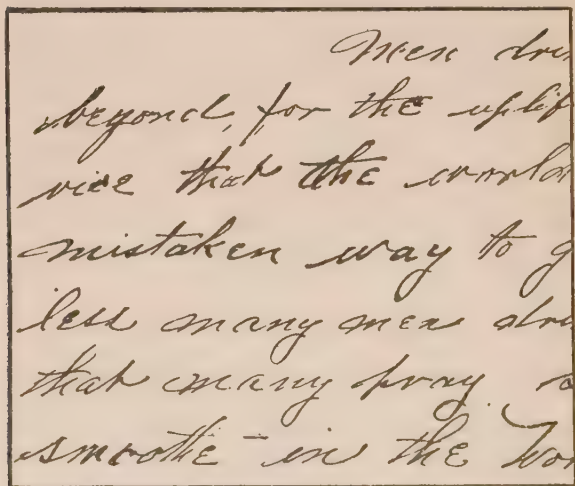 Men dri
beyond, for the uplif
vice that the world
mistaken way to g
less many men dri
that many pray
smooth - in the Wor